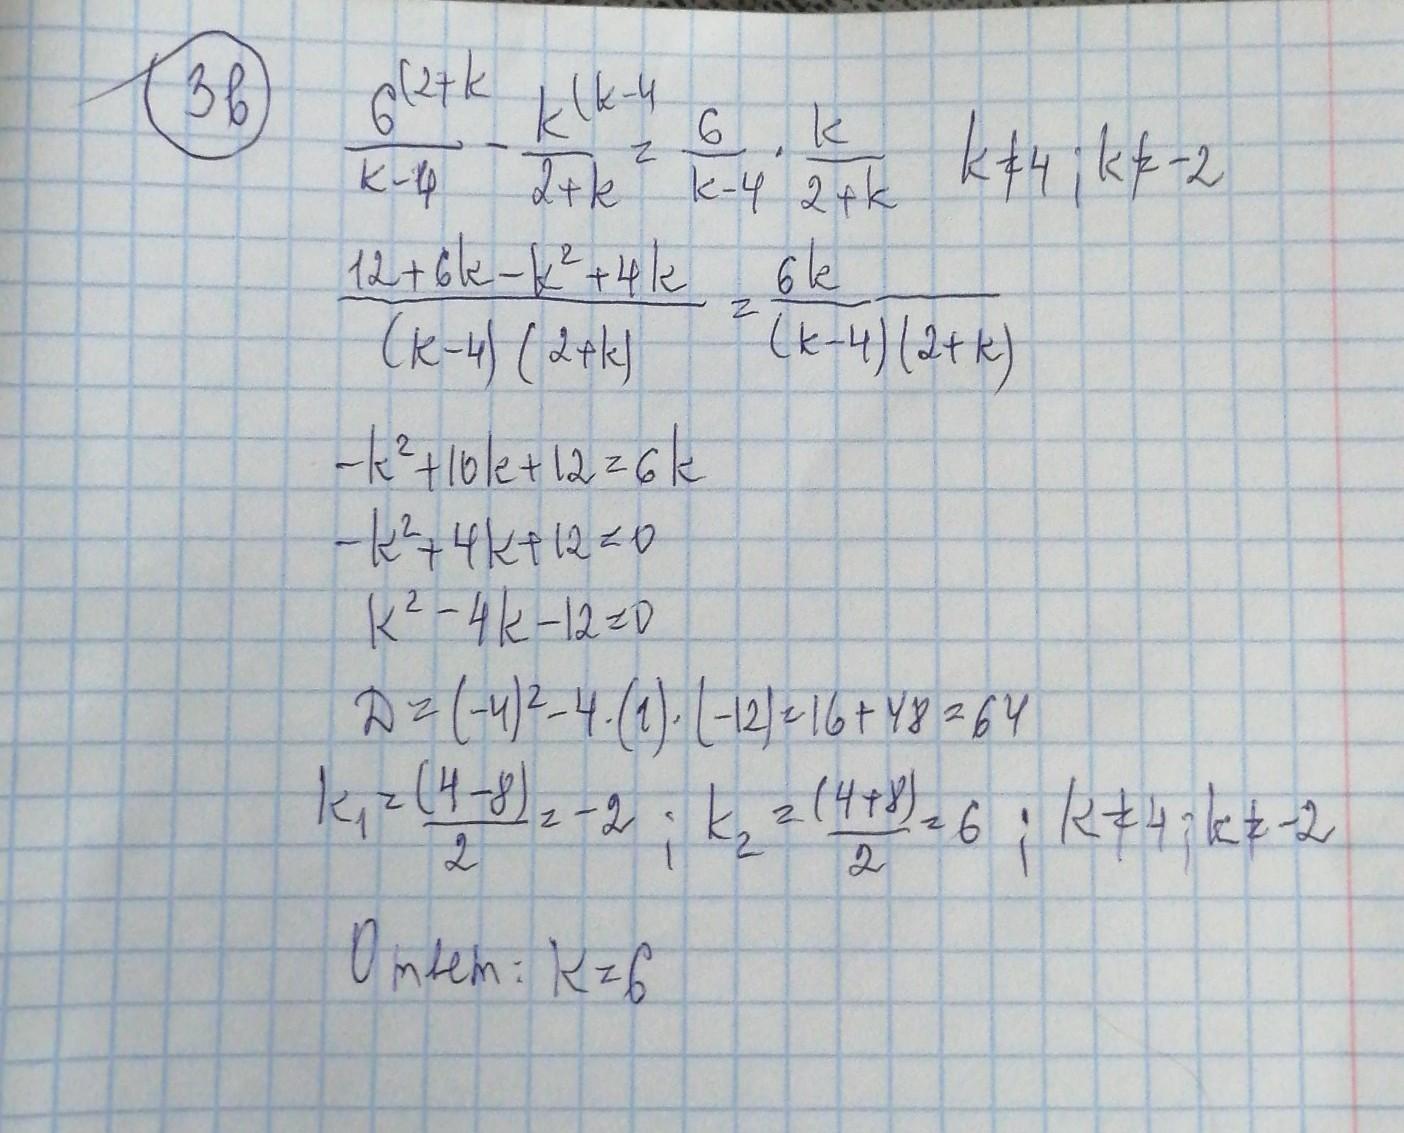 3в
6^(2+k / k-4 - k^(k-4 / 2+k = 6 / k-4 · k / 2+k k≠4 ; k≠-2
12+6k-k²+4k / (k-4)(2+k) = 6k / (k-4)(2+k)
-k²+10k+12=6k
-k²+4k+12=0
k²-4k-12=0
D=(-4)²-4·(1)·(-12)=16+48=64
k₁=(4-8)/2=-2 ; k₂=(4+8)/2=6 ; k≠4 ; k≠-2
Ответ: k=6